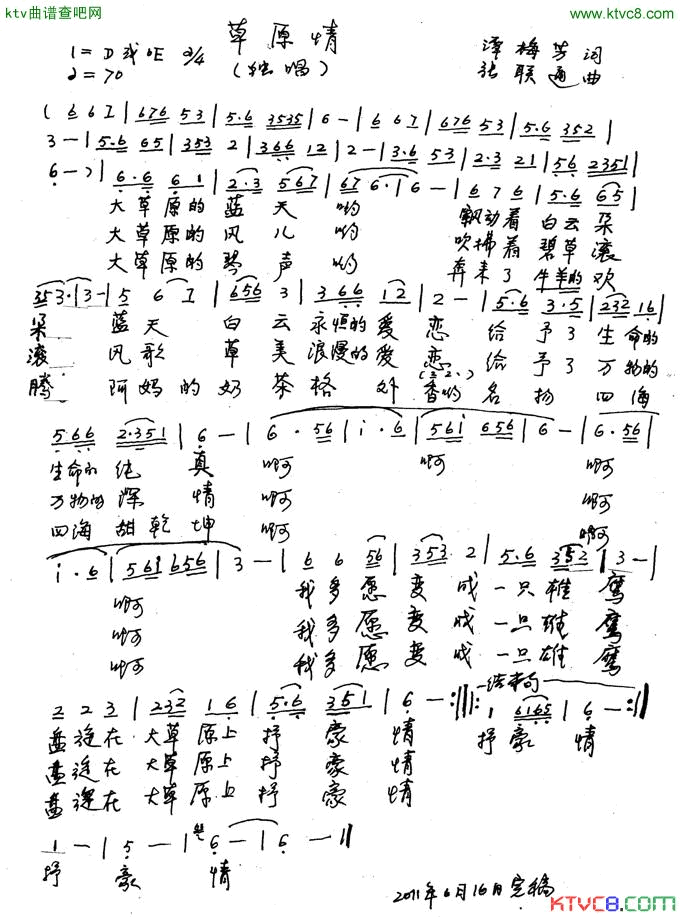 ktv曲谱查吧网
www.ktvc8.com
草原情
(独唱)
1=D或bE 2/4
♩=70
泽梅芳 词
张联通 曲
( 6 6 1̇ | 676 5 3 | 5·6 3535 | 6 - | 6 6 1̇ | 676 5 3 | 5·6 352 |
3 - | 5·6 65 | 353 2 | 366 12 | 2 - | 3·6 53 | 2·3 21 | 56 2351 |
6 - ) | 6·6 61 | 2·3 567 | 67 6· | 6 - | 6 7 6 | 5·6 65 |
大草原的 蓝天 哟 飘动着 白云朵
大草原的 风儿 哟 吹拂着 碧草滚
大草原的 琴声 哟 奔来了 牛羊的欢
353· | 3 - | 5 6 1̇ | 656 3 | 366 12 | 2 - | 5·6 3·5 | 232 16 |
朵 蓝天 白云 永恒的爱 恋 给予了 生命的
滚 风歌 草美 浪漫的爱 恋 给予了 万物的
腾 阿妈的 奶茶 格外 香哟 名扬 四海
566 2·351 | 6 - | 6 · 56 | i · 6 | 56i 656 | 6 - | 6 · 56 |
生命的 纯真 啊 啊 啊
万物的 深情 啊 啊
四海 甜乾坤 啊 啊
i · 6 | 56i 656 | 3 - | 6 6 56 | 353 2 | 5·6 352 | 3 - |
啊 我多愿 变成 一只雄鹰
啊 我多愿 变成 一只雄鹰
啊 我多愿 变成 一只雄鹰
结束句
2 2 3 | 232 16 | 5·6 351 | 6 - :‖: 1 6165 | 6 - :‖
盘旋在 大草原上 抒豪情 抒豪情
盘旋在 大草原上 抒豪情
盘旋在 大草原上 抒豪情
1 - | 5 - | 6 - | 6 - ‖
抒 豪 情
2011年6月16日完稿
KTVC8.COM